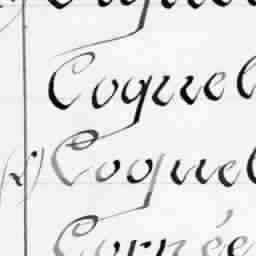 Coquel
Coquel
Cornée